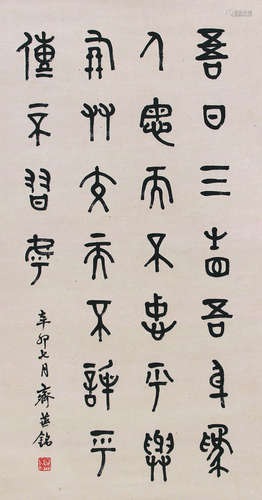 吾日三省吾身為
人謀而不忠乎與
朋友交而不信乎
傳不習乎
辛卯七月齊燕銘